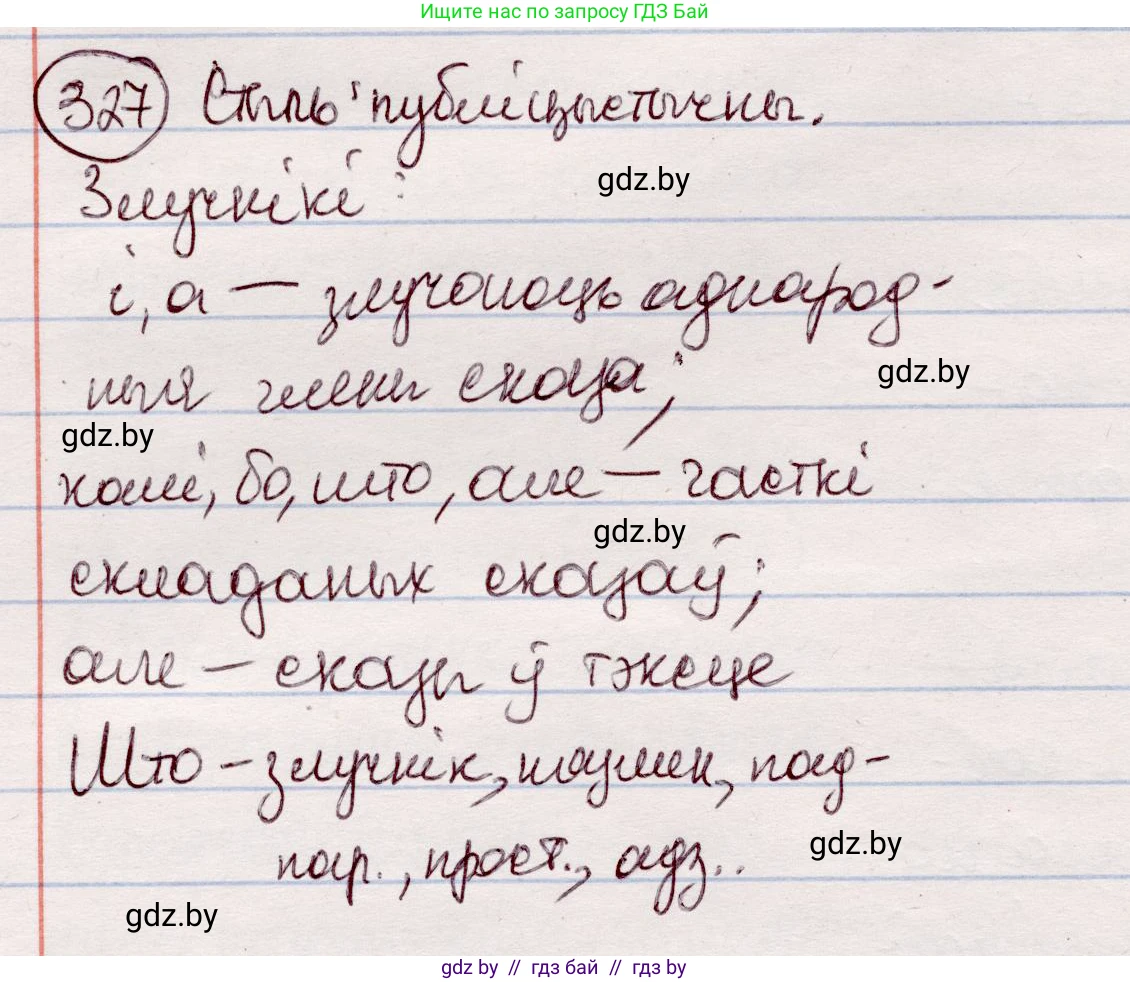 Ищите нас по запросу ГДЗ Бай
327 Стыль публіцыстычны.
gdz.by
Злучнікі:
і, а — злучаюць аднарод-
gdz.by
ныя члены сказа;
gdz.by
калі, бо, што, але — часткі
gdz.by
складаных сказаў;
але — сказы ў тэксце
Што – злучнік, паўмен, пад-
gdz.by
пар., прост., адз..
gdz.by
gdz by // гдз бай // гdз by